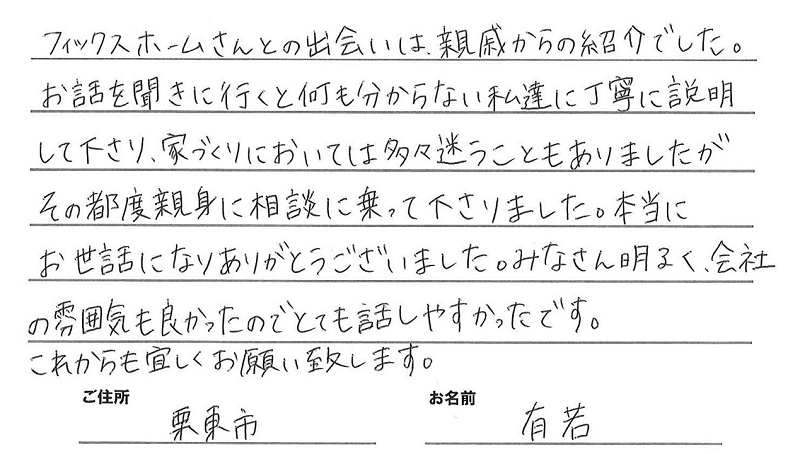 フィックスホームさんとの出会いは、親戚からの紹介でした。
お話を聞きに行くと何も分からない私達に丁寧に説明
して下さり、家づくりにおいては多々迷うこともありましたが
その都度親身に相談に乗って下さりました。本当に
お世話になりありがとうございました。みなさん明るく、会社
の雰囲気も良かったのでとても話しやすかったです。
これからも宜しくお願い致します。
ご住所 お名前
栗東市 有若